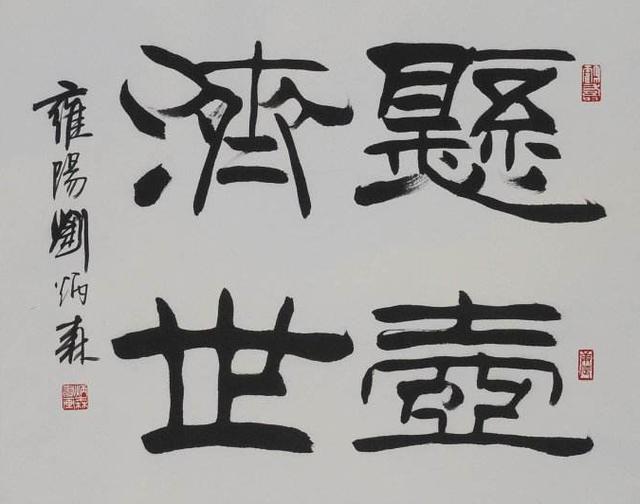 懸壺
濟世
雍陽劉炳森